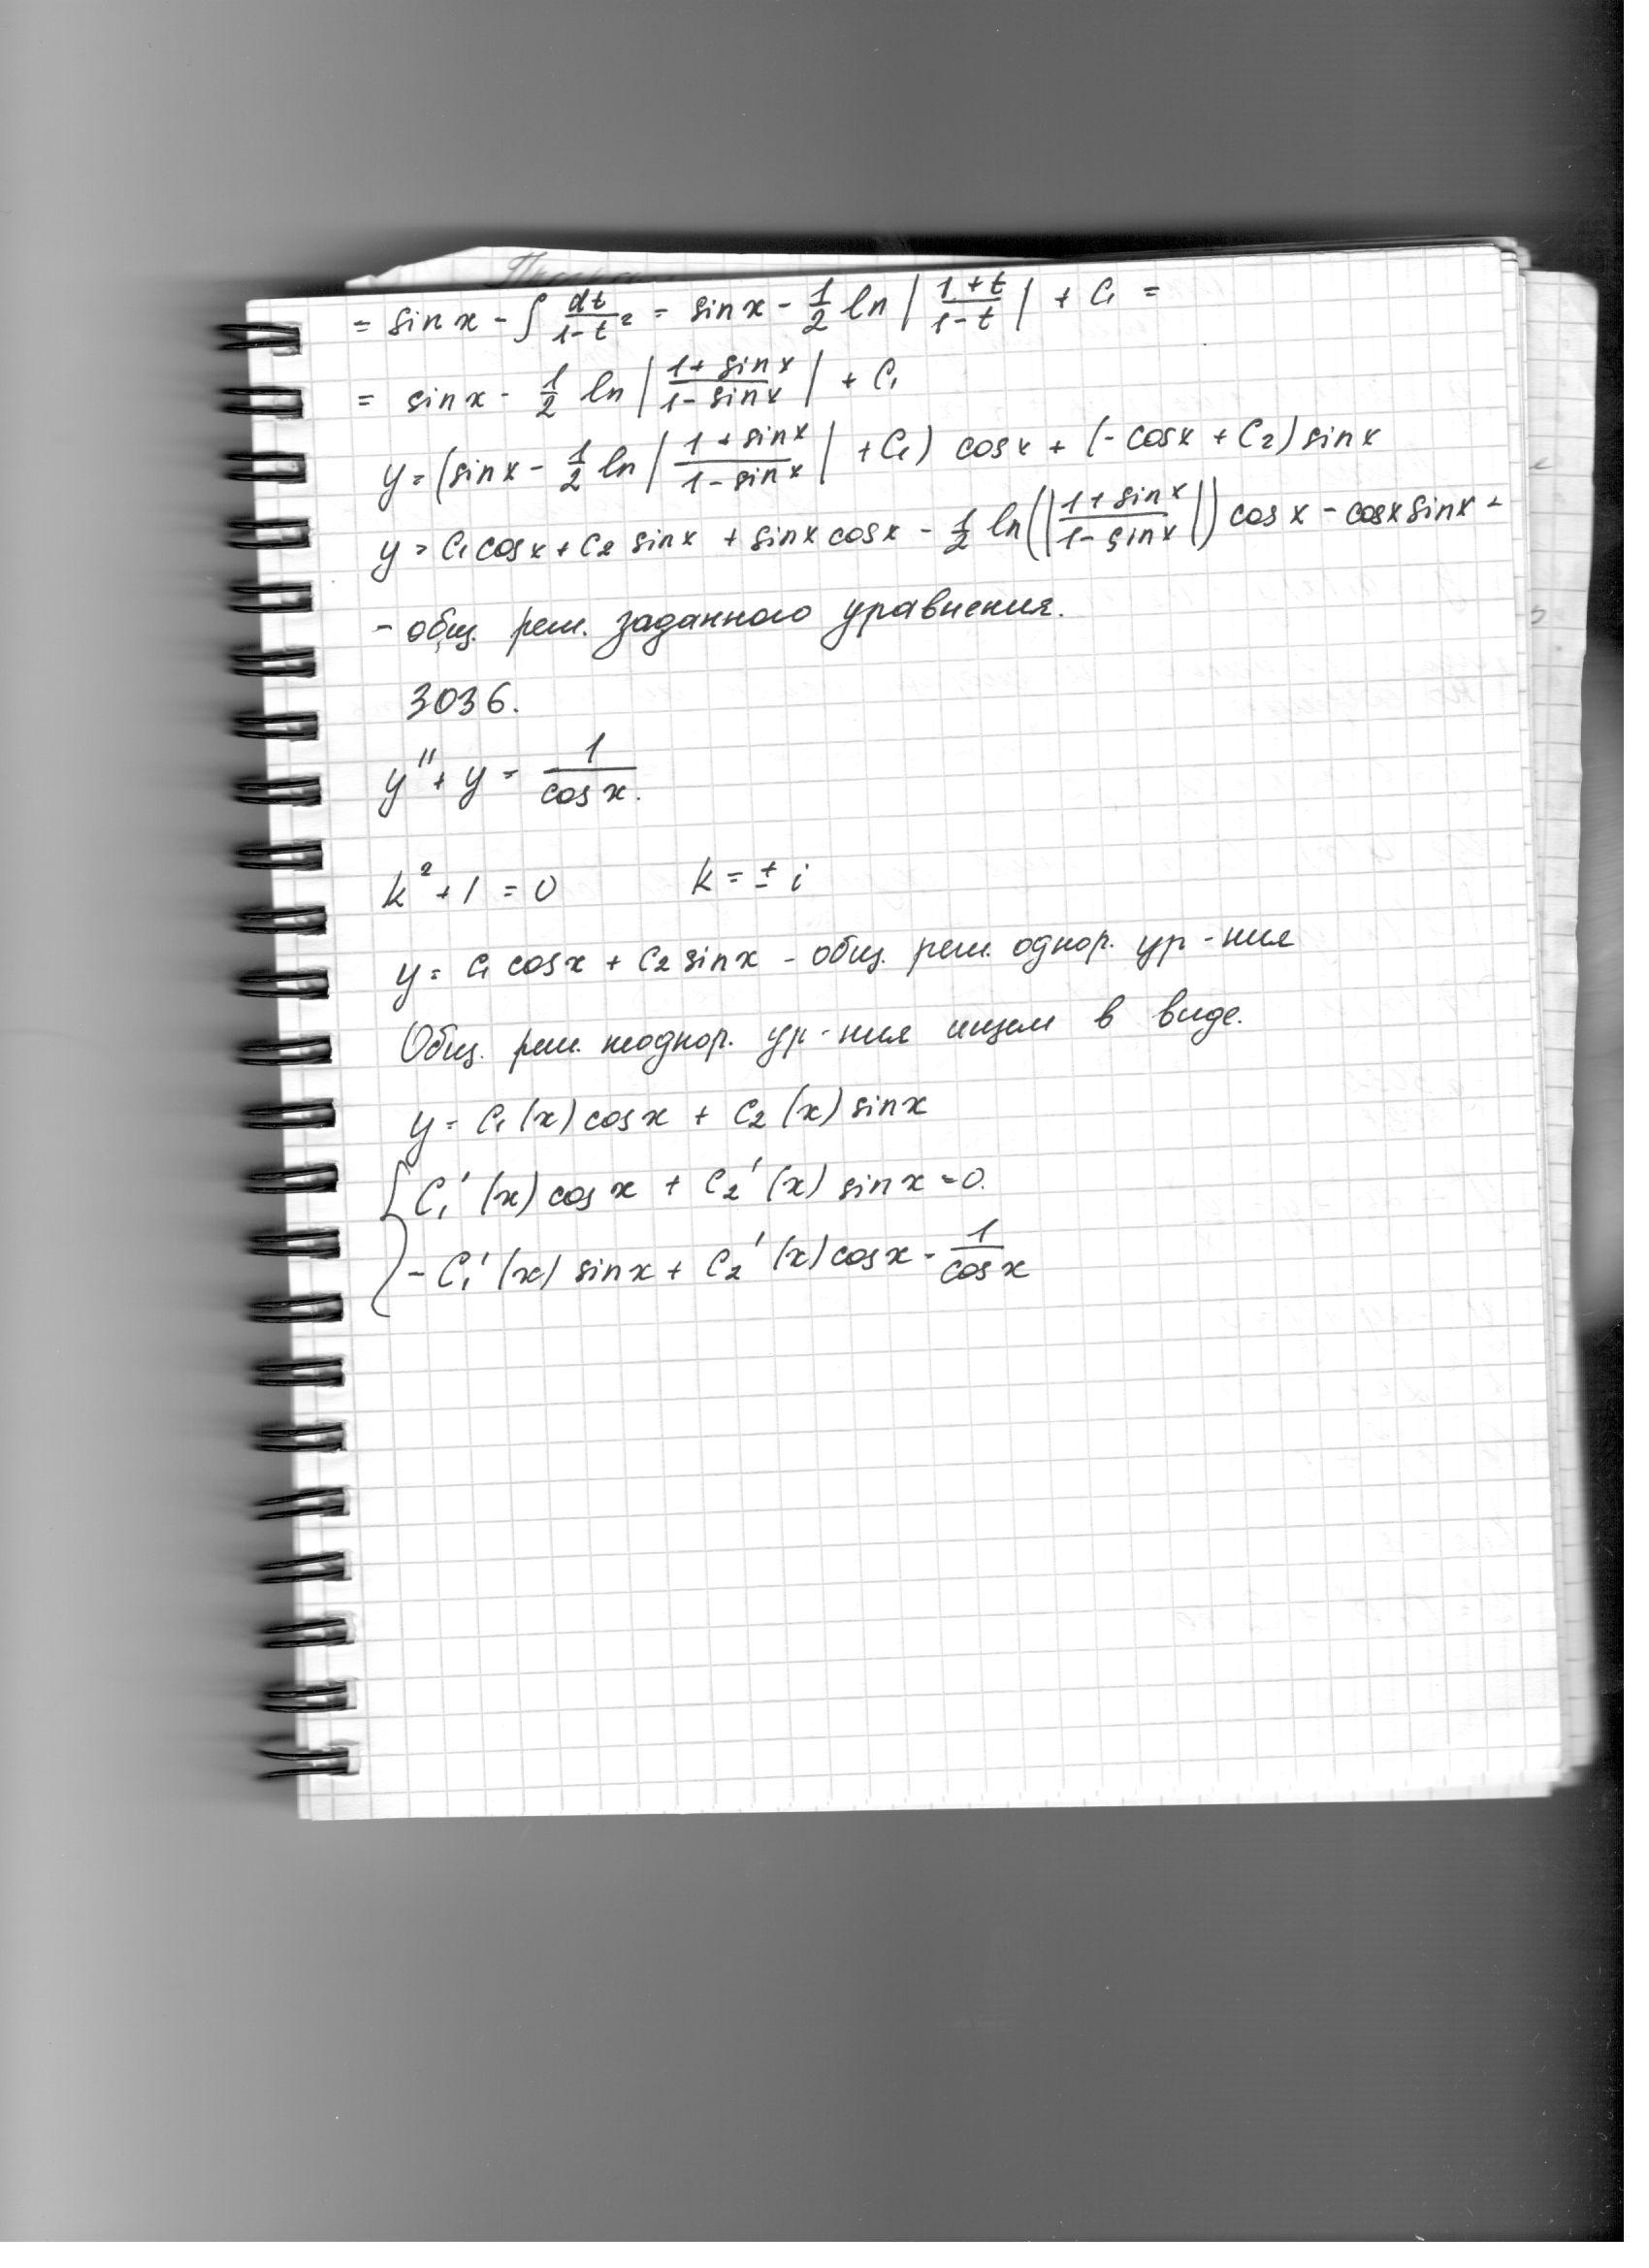 = sin x - ∫ dt/(1-t²) = sin x - 1/2 ln |(1+t)/(1-t)| + C₁ =
= sin x - 1/2 ln |(1+sin x)/(1-sin x)| + C₁
y = (sin x - 1/2 ln |(1+sin x)/(1-sin x)| + C₁) cos x + (-cos x + C₂) sin x
y = C₁ cos x + C₂ sin x + sin x cos x - 1/2 ln(|(1+sin x)/(1-sin x)|) cos x - cos x sin x -
- общ. реш. заданного уравнения.
3036.
y'' + y = 1/cos x.
k² + 1 = 0 k = ± i
y = C₁ cos x + C₂ sin x - общ. реш. однор. ур-ния
Общ. реш. неоднор. ур-ния ищем в виде.
y = C₁(x) cos x + C₂(x) sin x
{ C₁'(x) cos x + C₂'(x) sin x = 0.
- C₁'(x) sin x + C₂'(x) cos x = 1/cos x